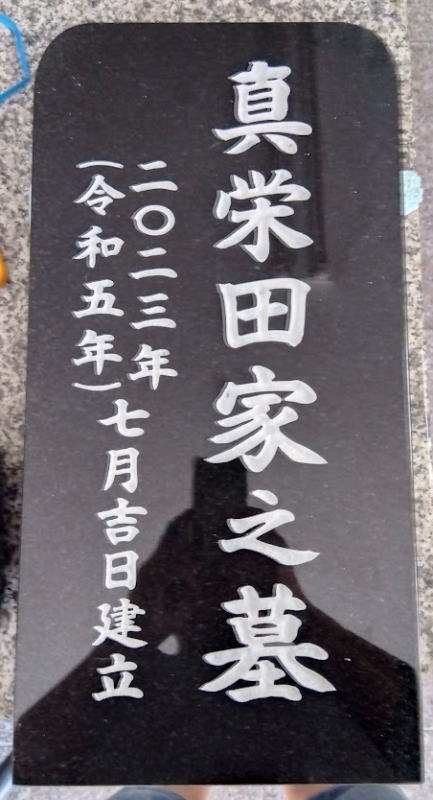 真栄田家之墓
二〇二三年
(令和五年)
七月吉日建立